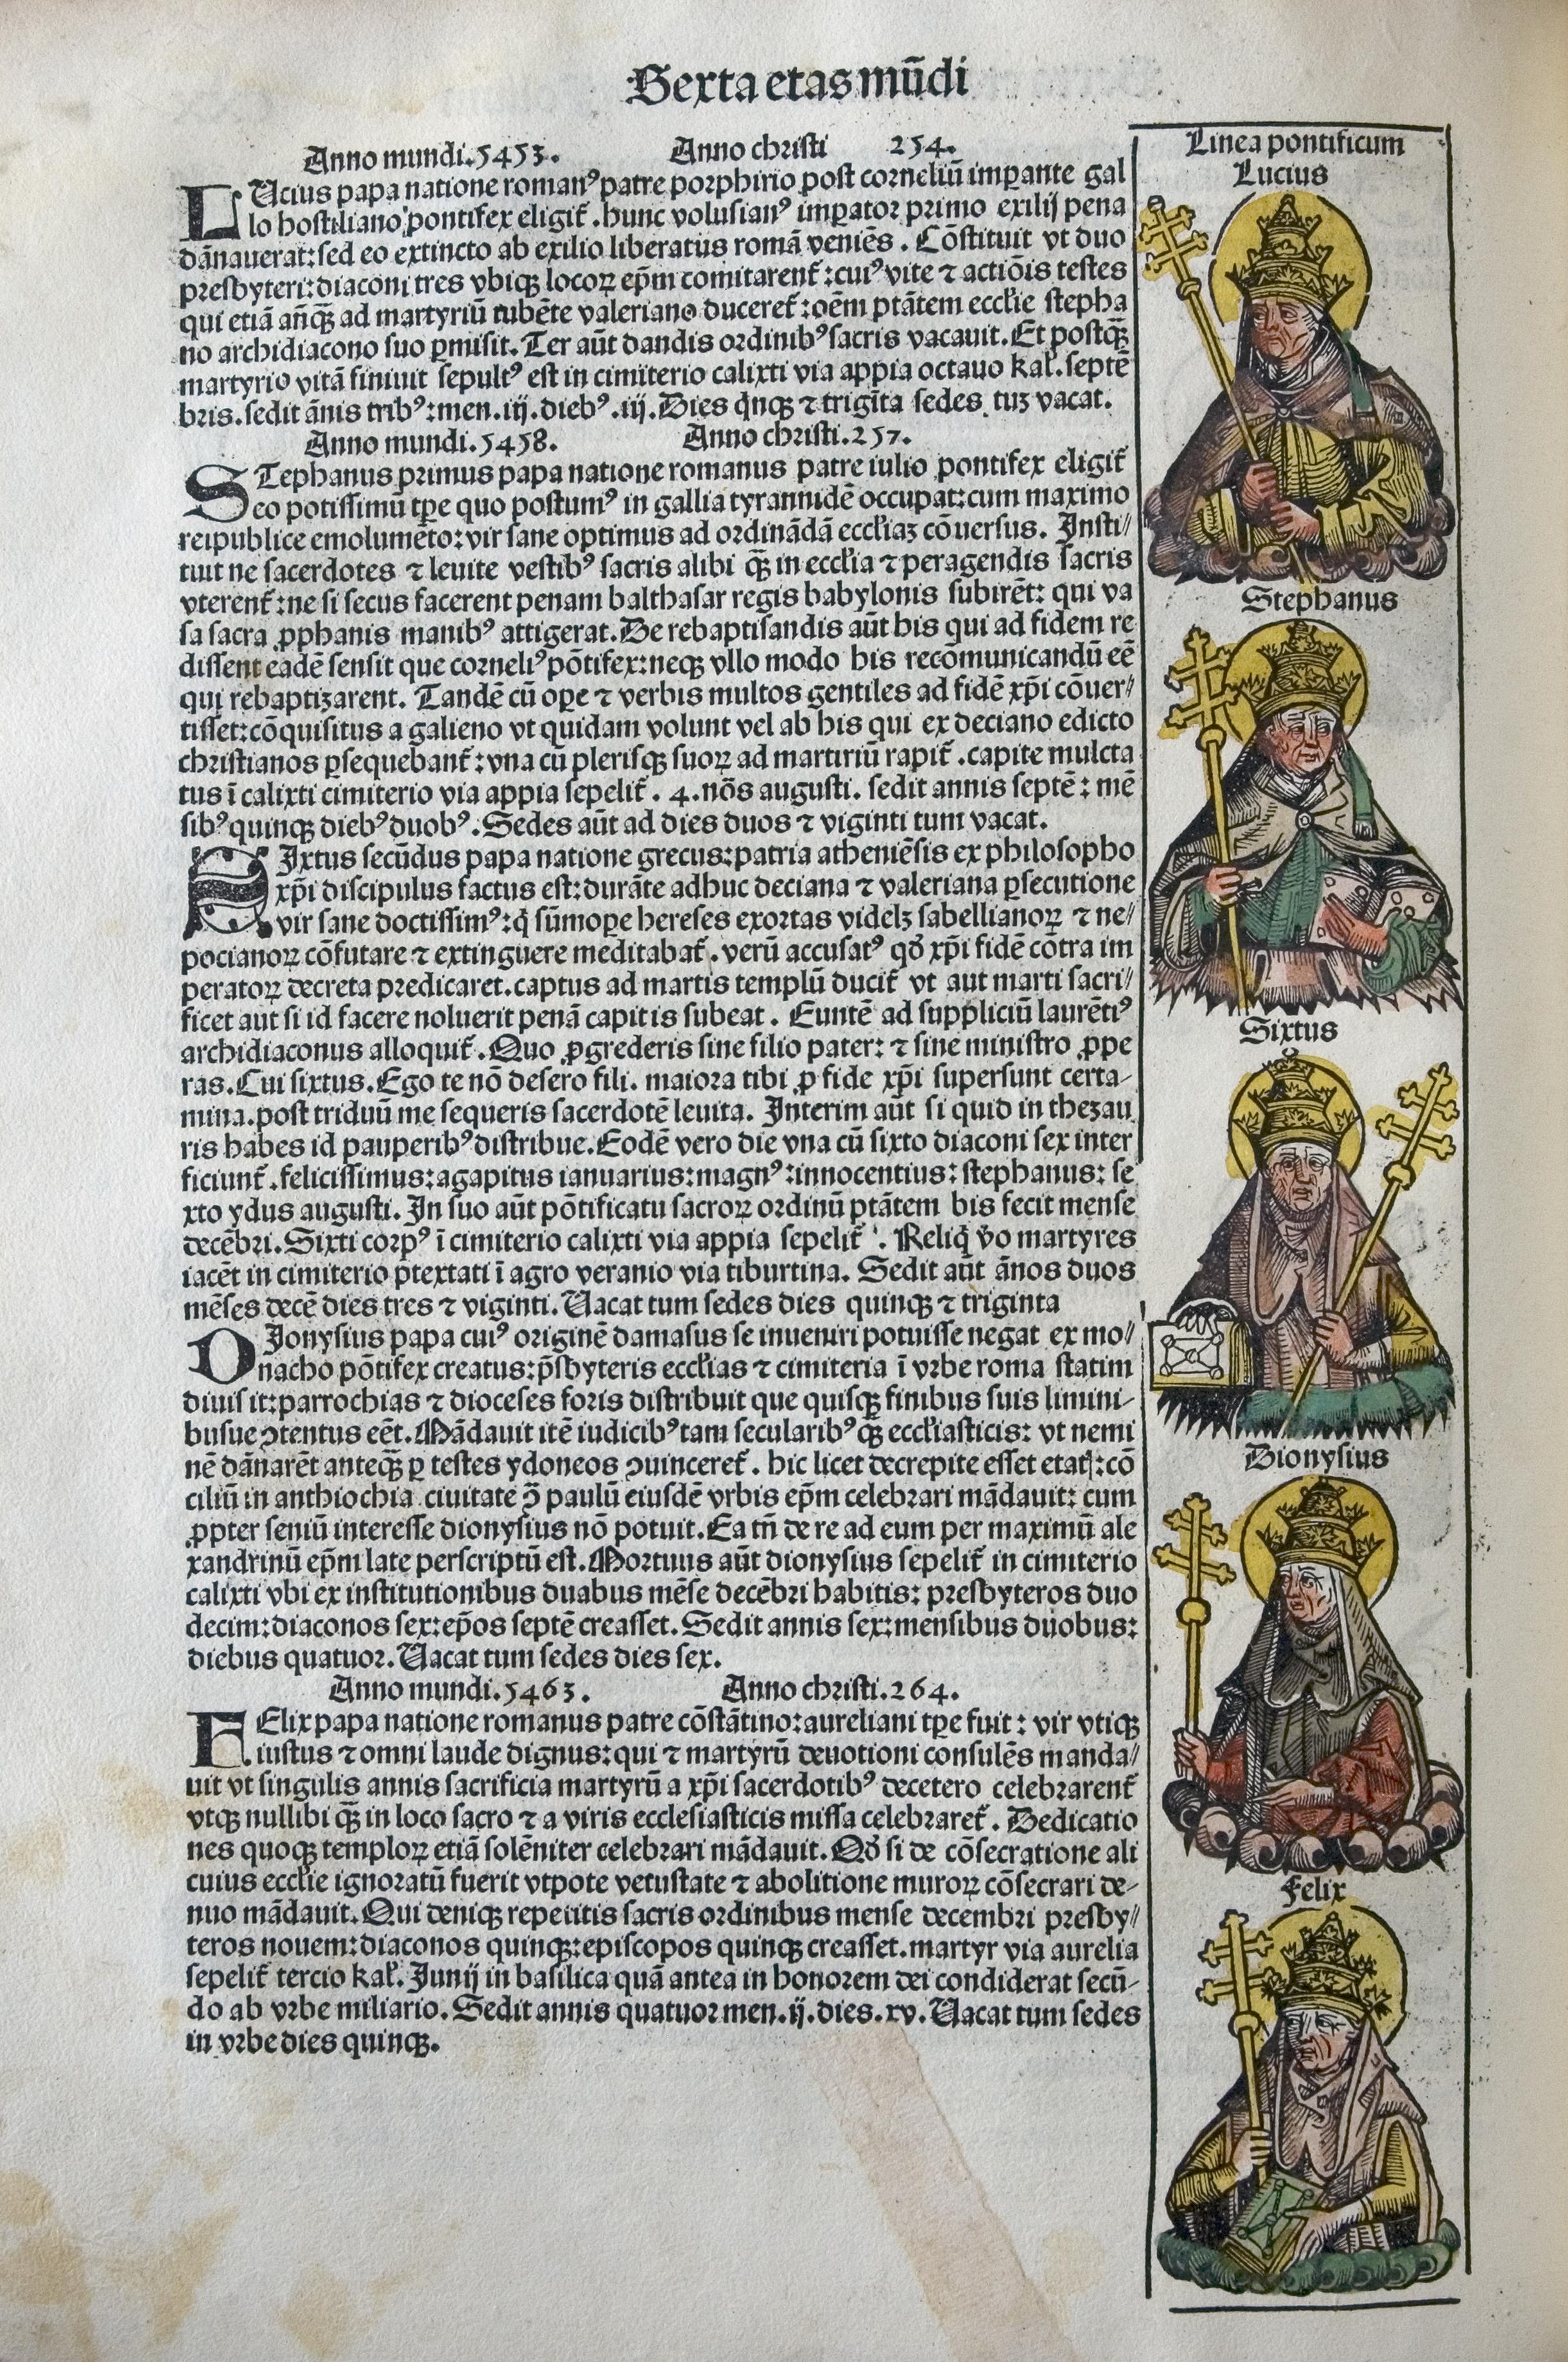 Sexta etas mūdi
Anno mundi.5453. Anno christi 254.
LUcius papa natione romanꝰ patre porphirio post corneliū imꝑante gal
lo hostiliano pontifex eligit̄. hunc volusianꝰ imꝑator primo exilij pena
dānauerat: sed eo extincto ab exilio liberatus romā veniēs. Cōstituit vt duo
presbyteri: diaconi tres vbiqꝫ locoꝝ ep̄m comitarent̄: cuiꝰ vite ⁊ actiōis testes
qui etiā anq̄ꝫ ad martyriū iubēte valeriano duceret̄: oēm ptātem eccl̄ie stepha
no archidiacono suo ꝑmisit. Ter aūt dandis ordinibꝰ sacris vacauit. Et postq̄ꝫ
martyrio vitā finiuit sepultꝰ est in cimiterio calixti via appia octauo kal̄. septē
bris. sedit ānis tribꝰ: men. iij. diebꝰ. iij. Dies qͥnqꝫ ⁊ trigīta sedes tuꝫ vacat.
Anno mundi.5458. Anno christi.257.
STephanus primus papa natione romanus patre iulio pontifex eligit̄
eo potissimū tꝑe quo postumꝰ in gallia tyrannidē occupat: cum maximo
reipublice emolumēto: vir sane optimus ad ordinādā eccl̄iaꝫ cōuersus. Insti//
tuit ne sacerdotes ⁊ leuite vestibꝰ sacris alibi q̄ꝫ in eccl̄ia ⁊ peragendis sacris
vterent̄: ne si secus facerent penam balthasar regis babylonis subirēt: qui va
sa sacra ꝓphanis manibꝰ attigerat. De rebaptisandis aūt his qui ad fidem re
dissent eadē sensit que corneliꝰ pōtifex: neqꝫ vllo modo his recōmunicandū eē
qui rebaptizarent. Tandē cū oꝑe ⁊ verbis multos gentiles ad fidē xp̄i cōuer//
tisset: cōquisitus a galieno vt quidam volunt vel ab his qui ex deciano edicto
christianos ꝑsequebant̄: vna cū plerisqꝫ suoꝝ ad martiriū rapit̄. capite mulcta
tus ī calixti cimiterio via appia sepelit̄. 4. nōs augusti. sedit annis septē: mē
sibꝰ quinqꝫ diebꝰ duobꝰ. Sedes aūt ad dies duos ⁊ viginti tum vacat.
SIxtus secūdus papa natione grecus: patria atheniēsis ex philosopho
xp̄i discipulus factus est: durāte adhuc deciana ⁊ valeriana ꝑsecutione
vir sane doctissimꝰ: qͥ sūmoꝑe hereses exortas videlꝫ sabellianoꝝ ⁊ ne//
pocianoꝝ cōfutare ⁊ extinguere meditabat̄. verū accusatꝰ qͦ xp̄i fidē cōtra im
peratoꝝ decreta predicaret. captus ad martis templū ducit̄ vt aut marti sacri//
ficet aut si id facere noluerit penā capitis subeat. Euntē ad suppliciū laurētiꝰ
archidiaconus alloquit̄. Quo ꝓgrederis sine filio pater: ⁊ sine ministro ꝓpe
ras. Cui sixtus. Ego te nō desero fili. maiora tibi ꝓ fide xp̄i supersunt certa-
mina. post triduū me sequeris sacerdotē leuita. Interim aūt si quid in thezau
ris habes id pauperibꝰ distribue. Eodē vero die vna cū sixto diaconi sex inter
ficiunt̄. felicissimus: agapitus ianuarius: magnꝰ: innocentius: stephanus: se
xto ydus augusti. In suo aūt pōtificatu sacroꝝ ordinū ptātem bis fecit mense
decēbri. Sixti corpꝰ ī cimiterio calixti via appia sepelit̄. Reliqͥ v̄o martyres
iacēt in cimiterio p̄textati ī agro veranio via tiburtina. Sedit aūt ānos duos
mēses decē dies tres ⁊ viginti. Uacat tum sedes dies quinqꝫ ⁊ triginta
DIonysius papa cuiꝰ originē damasus se inueniri potuisse negat ex mo//
nacho pōtifex creatus: p̄sbyteris eccl̄ias ⁊ cimiteria ī vrbe roma statim
diuisit: parrochias ⁊ dioceses foris distribuit que quisqꝫ finibus suis limini-
busue ꝯtentus eēt. Mādauit itē iudicibꝰ tam secularibꝰ q̄ꝫ eccl̄iasticis: vt nemi
nē dānarēt anteq̄ꝫ ꝑ testes ydoneos ꝯuinceret̄. hic licet decrepite esset etatꝭ: cō
ciliū in anthiochia ciuitate ꝯ̄ paulū eiusdē vrbis ep̄m celebrari mādauit: cum
ꝓpter seniū interesse dionysius nō potuit. Ea tn̄ de re ad eum per maximū ale
xandrinū ep̄m late perscriptū est. Mortuus aūt dionysius sepelit̄ in cimiterio
calixti vbi ex institutionibus duabus mēse decēbri habitis: presbyteros duo
decim: diaconos sex: ep̄os septē creasset. Sedit annis sex: mensibus duobus:
diebus quatuor. Uacat tum sedes dies sex.
Anno mundi.5463. Anno christi.264.
FElix papa natione romanus patre cōstātino: aureliani tꝑe fuit: vir vtiqꝫ
iustus ⁊ omni laude dignus: qui ⁊ martyrū deuotioni consulēs manda//
uit vt singulis annis sacrificia martyrū a xp̄i sacerdotibꝰ decetero celebrarent̄
vtqꝫ nullibi q̄ꝫ in loco sacro ⁊ a viris ecclesiasticis missa celebraret̄. Dedicatio
nes quoqꝫ temploꝝ etiā solēniter celebrari mādauit. Qͦ si de cōsecratione ali
cuius eccl̄ie ignoratū fuerit vtpote vetustate ⁊ abolitione muroꝝ cōsecrari de-
nuo mādauit. Qui deniqꝫ repetitis sacris ordinibus mense decembri presby//
teros nouem: diaconos quinqꝫ: episcopos quinqꝫ creasset. martyr via aurelia
sepelit̄ tercio kal̄. Junij in basilica quā antea in honorem dei condiderat secū-
do ab vrbe miliario. Sedit annis quatuor men. ij. dies. xv. Uacat tum sedes
in vrbe dies quinqꝫ.
Linea pontificum
Lucius
Stephanus
Sixtus
Dionysius
Felix